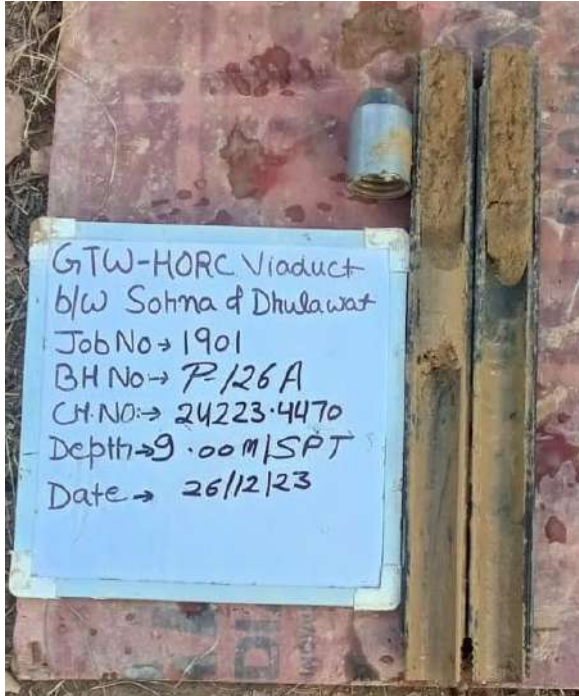 GTW-HORC Viaduct
b/w Sohna & Dhulawat
Job No→ 1901
BH No→ P-126A
CH.NO:→ 24223.4470
Depth→9.00M/SPT
Date→ 26/12/23